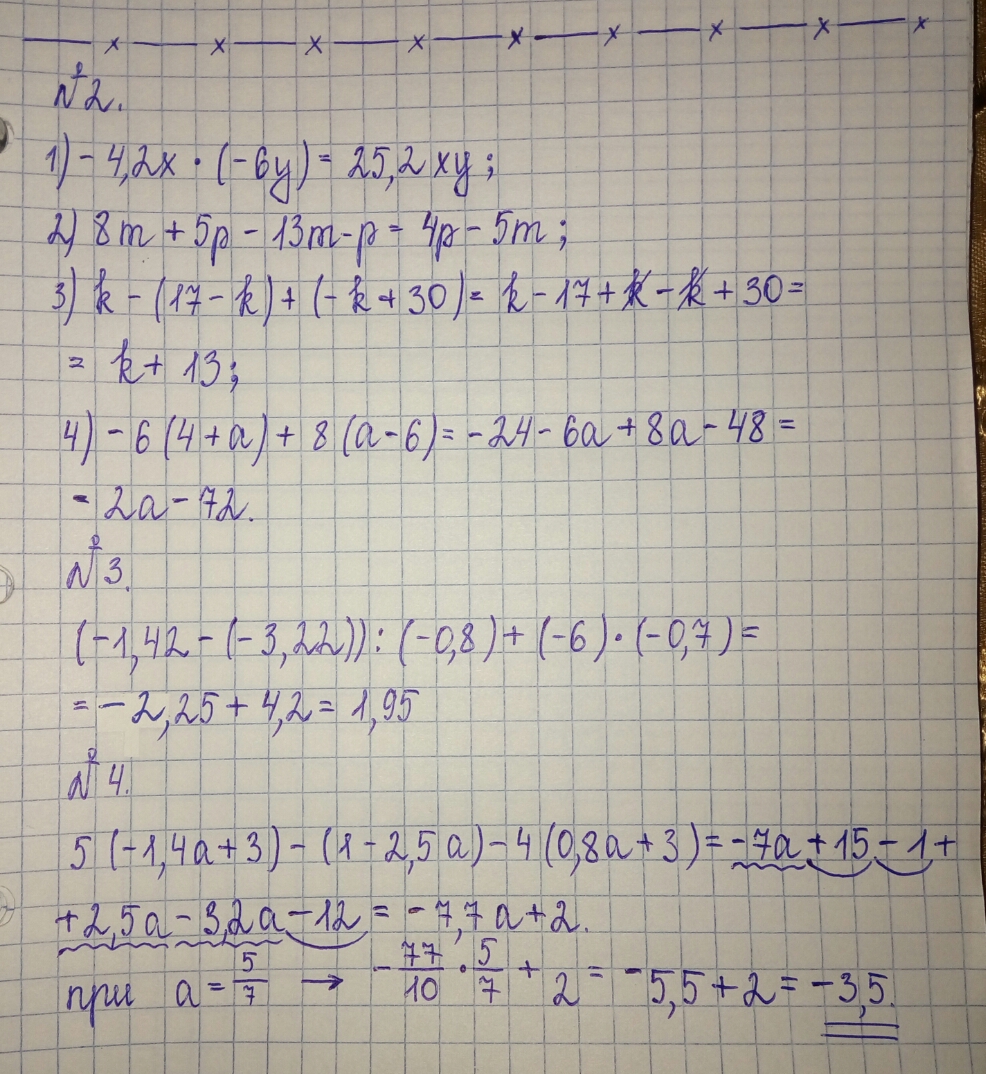 №2.
1) - 4,2x · (-6y) = 25,2xy;
2) 8m + 5p - 13m - p = 4p - 5m;
3) k - (17 - k) + (-k + 30) = k - 17 + k - k + 30 =
= k + 13;
4) - 6 (4 + a) + 8 (a - 6) = - 24 - 6a + 8a - 48 =
= 2a - 72.
№3.
(-1,42 - (-3,22)) : (-0,8) + (-6) · (-0,7) =
= - 2,25 + 4,2 = 1,95
№4.
5 (-1,4a + 3) - (1 - 2,5a) - 4 (0,8a + 3) = -7a + 15 - 1 +
+ 2,5a - 3,2a - 12 = - 7,7a + 2.
при a = 5/7 → - 77/10 · 5/7 + 2 = - 5,5 + 2 = - 3,5.